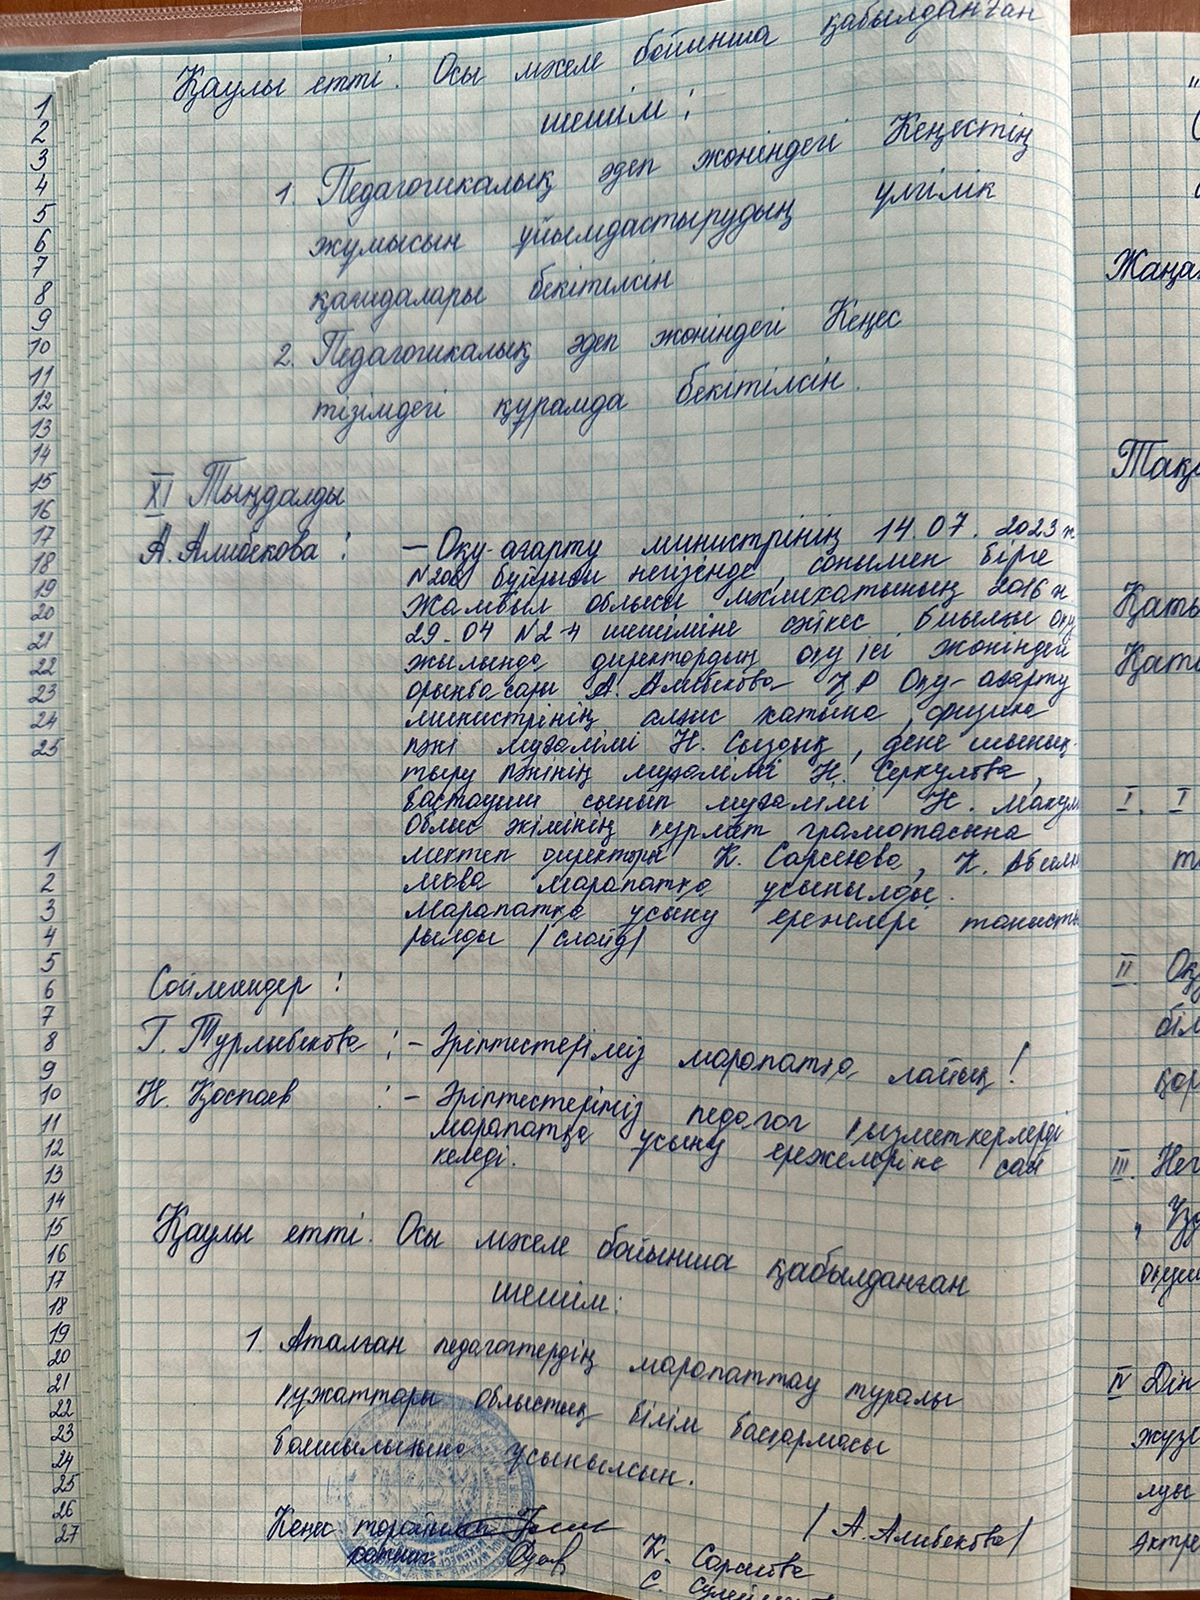 Қаулы етті. Осы мәселе бойынша қабылданған
шешім:
1. Педагогикалық әдеп жөніндегі Кеңестің
жұмысын ұйымдастырудың үлгілік
қағидалары бекітілсін
2. Педагогикалық әдеп жөніндегі Кеңес
тізімдегі құрамда бекітілсін.
XI Тыңдалды
А. Алибекова: – Оқу-ағарту министрінің 14.07.2023 ж
бұйрығы негізінде, сонымен бірге
Жамбыл облысы мәслихатының 2016 ж
29-04 №2-4 шешіміне сәйкес биылғы оқу
жылында директордың оқу ісі жөніндегі
орынбасары А. Алибекова ҚР Оқу-ағарту
министрінің алғыс хатына, физика
пәні мұғалімі Н. Сыздық, дене шынық-
тыру пәнінің мұғалімі Н. Серкулова,
бастауыш сынып мұғалімі Н.
облыс әкімінің құрмет грамотасына
мектеп директоры К.
марапатқа ұсынылды.
Марапатқа ұсыну ережелері танысты
рылды /слайд/
Сөйлегендер:
Г. Турлыбекова: – Әріптестеріміз марапатқа лайық!
Н. Қоспаев : – Әріптестеріміз педагог қызметкерлерді
марапатқа ұсыну ережелеріне сай
келеді.
Қаулы етті. Осы мәселе бойынша қабылданған
шешім:
1. Аталған педагогтердің марапаттау туралы
құжаттары облыстық білім басқармасы
басшылығына ұсынылсын.
Кеңес төрайымы /А. Алибекова/
К.
С.
1
2
3
4
5
6
7
8
9
10
11
12
13
14
15
16
17
18
19
20
21
22
23
24
25
1
2
3
4
5
6
7
8
9
10
11
12
13
14
15
16
17
18
19
20
21
22
23
24
25
26
27
I. I
II
III
IV Дін